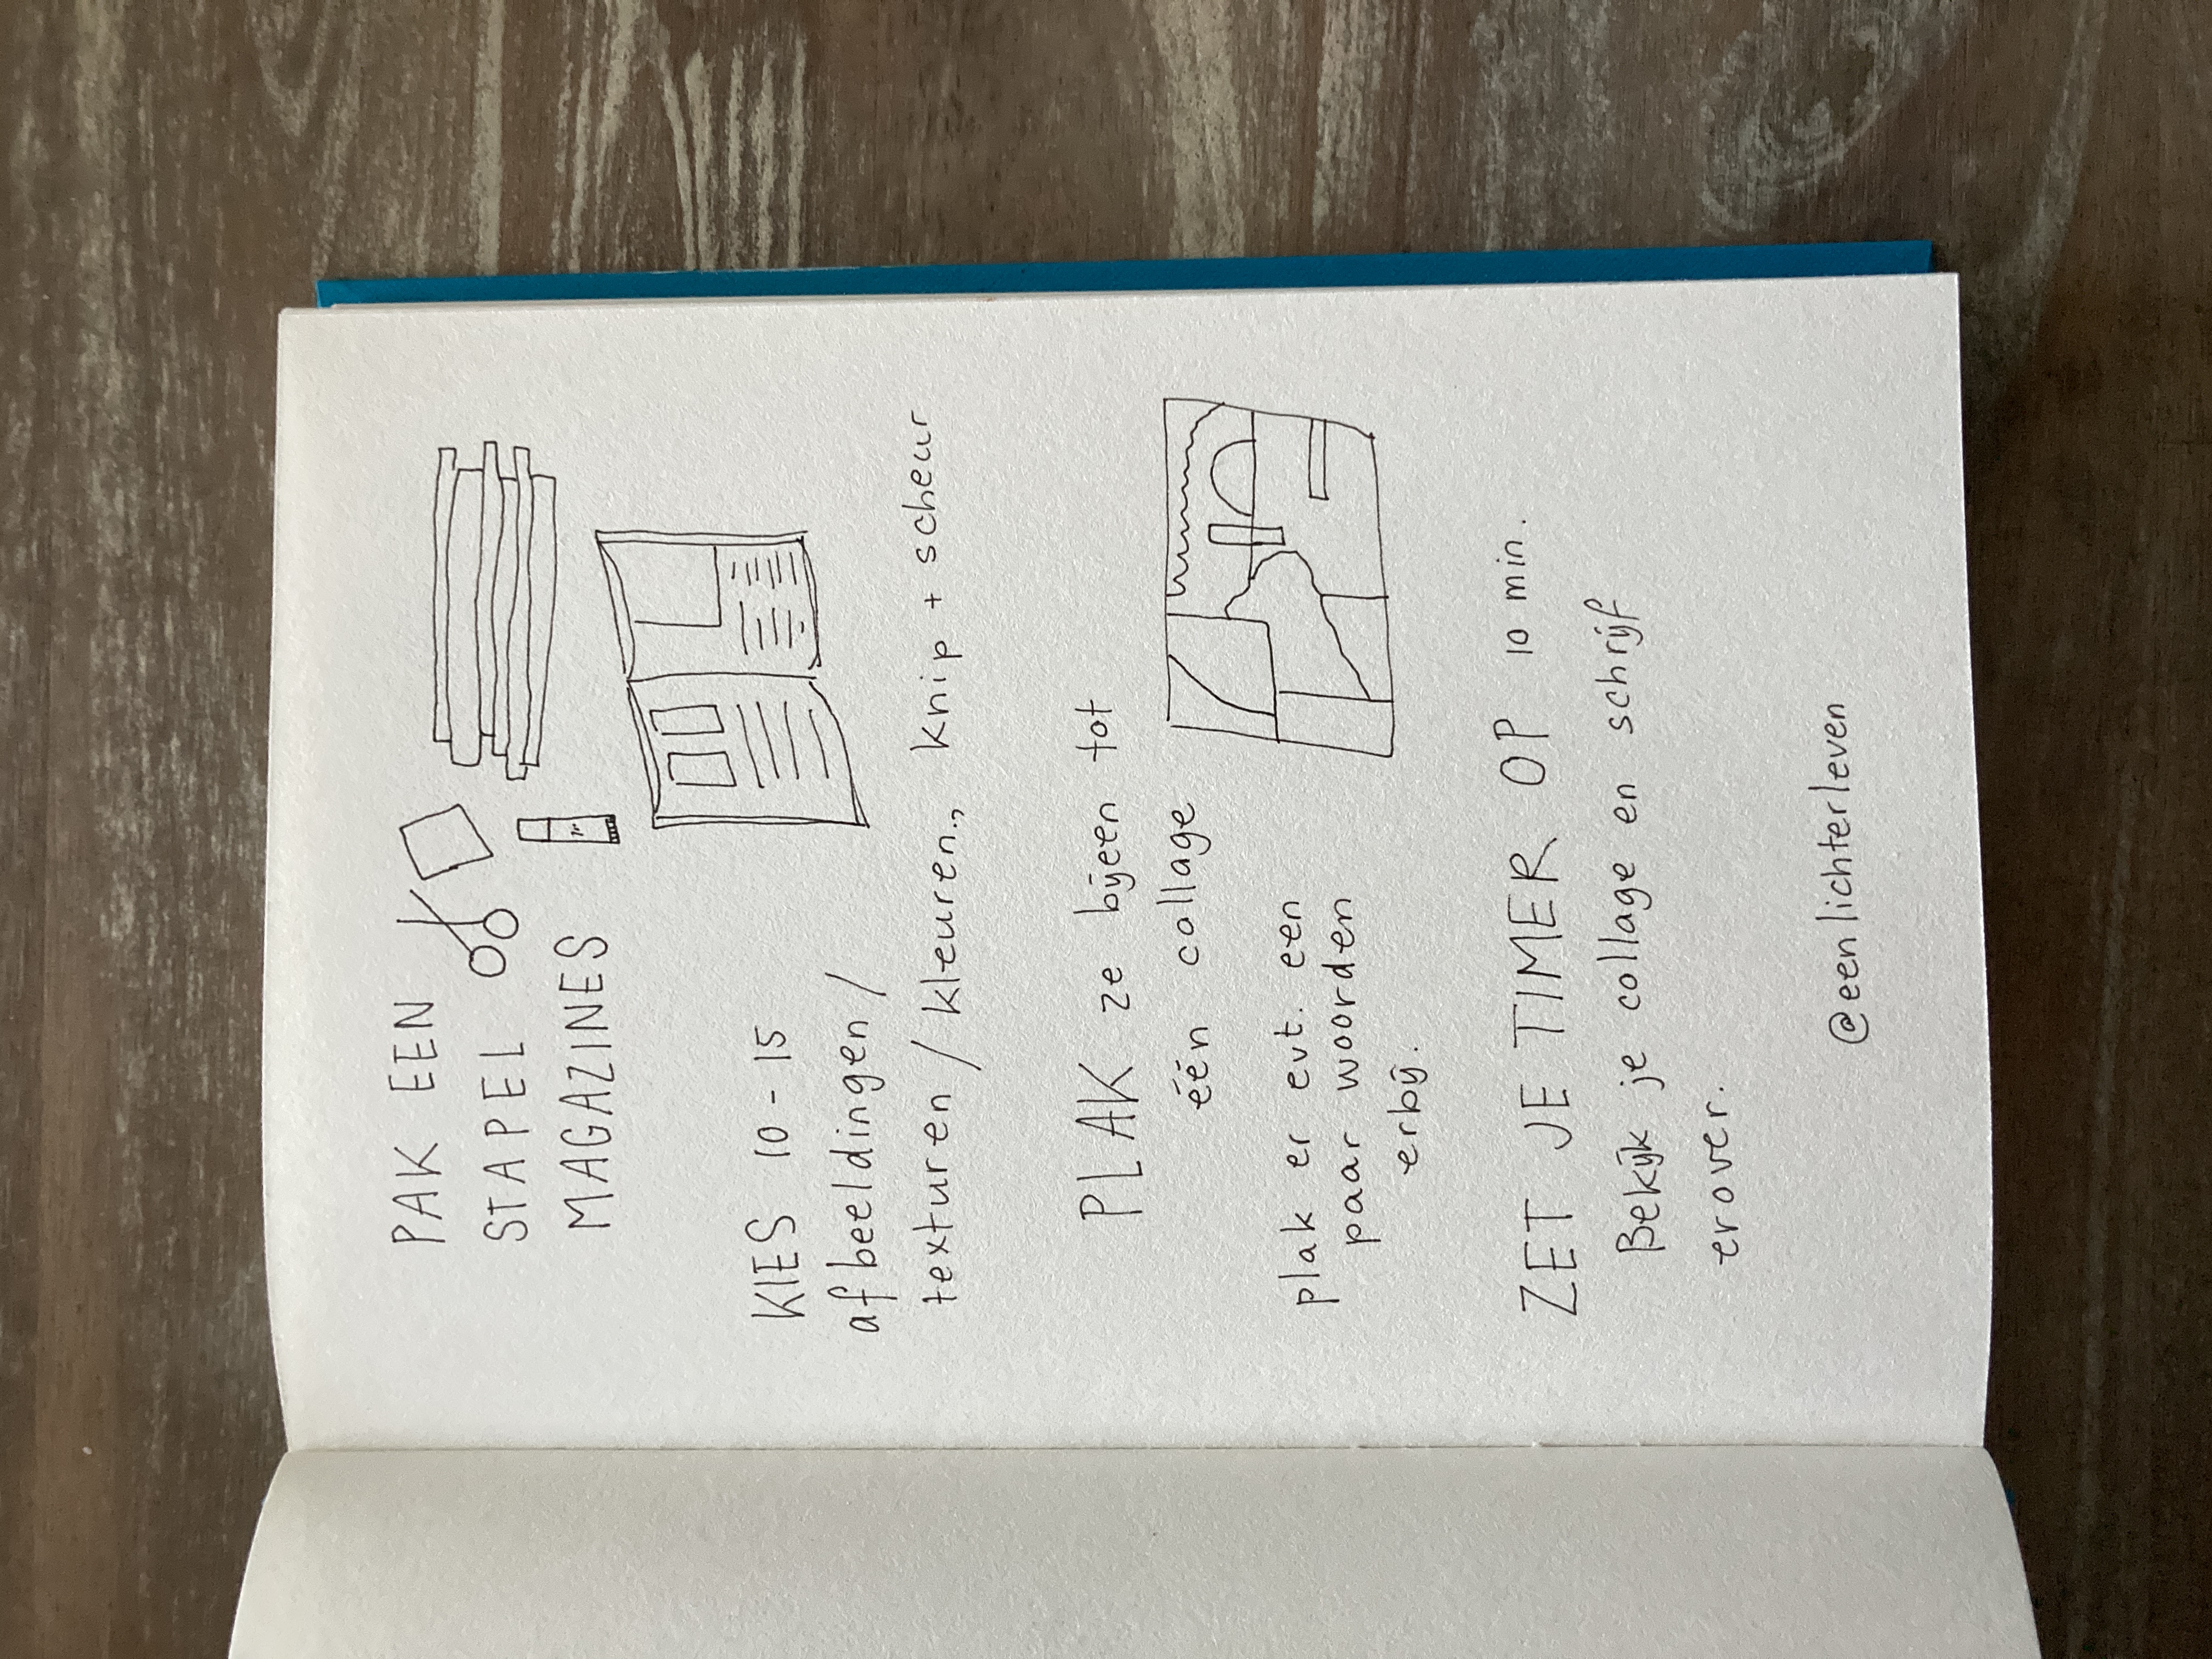 PAK EEN
STAPEL
MAGAZINES
KIES 10-15
afbeeldingen /
texturen / kleuren., knip + scheur
PLAK ze bijeen tot
één collage
plak er evt. een
paar woorden
erbij.
ZET JE TIMER OP 10 min.
Bekijk je collage en schrijf
erover.
@eenlichterleven